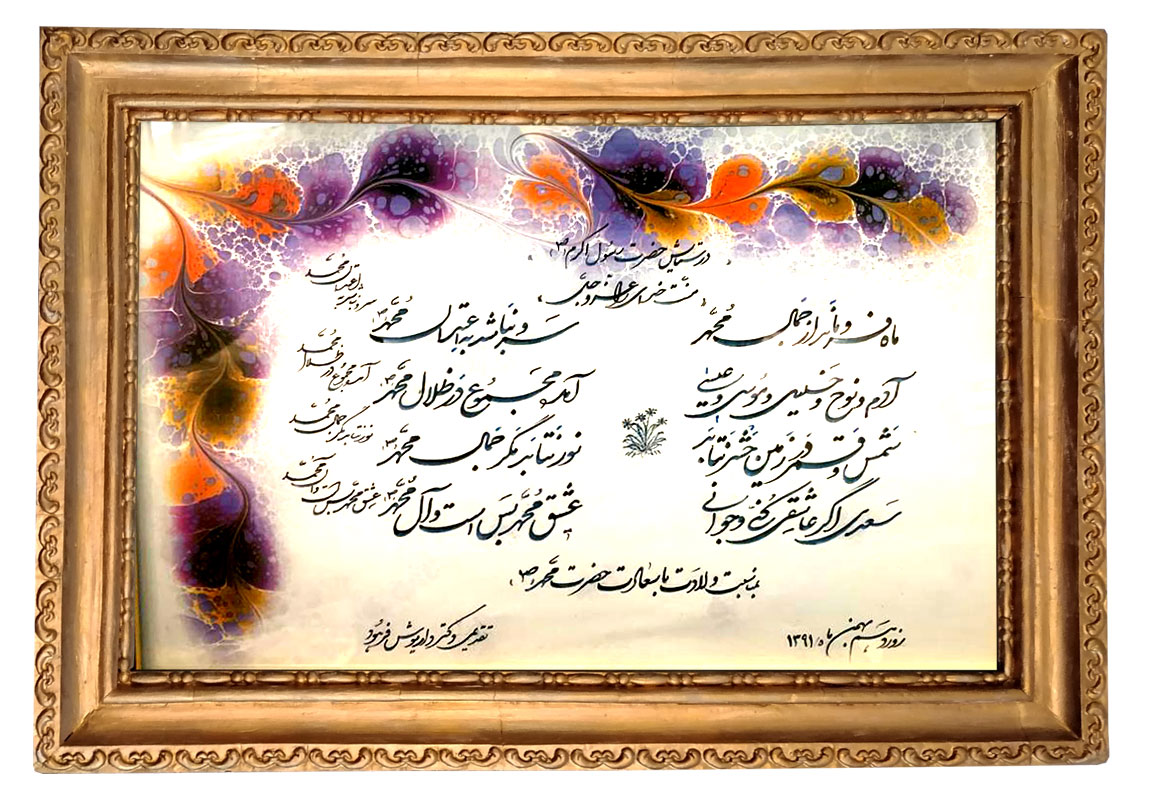 در ستایش حضرت رسول اکرم (ص)
منت خدای را عز و جل
ماه فرو ماند از جمال محمد سرو نباشد به اعتدال محمد
سرو نباشد به اعتدال محمد
آدم و نوح و خلیل و موسی و عیسی آمده مجموع در ظلال محمد
آمده مجموع در ظلال محمد
شمس و قمر در زمین حشر نتابد نور نتابد مگر جمال محمد
نور نتابد مگر جمال محمد
سعدی اگر عاشقی کنی و جوانی عشق محمد بس است و آل محمد
عشق محمد بس است و آل محمد
بمناسبت ولادت با سعادت حضرت محمد (ص)
روز دهم بهمن ماه ۱۳۹۱ تقدیمی دکتر داریوش فرهود